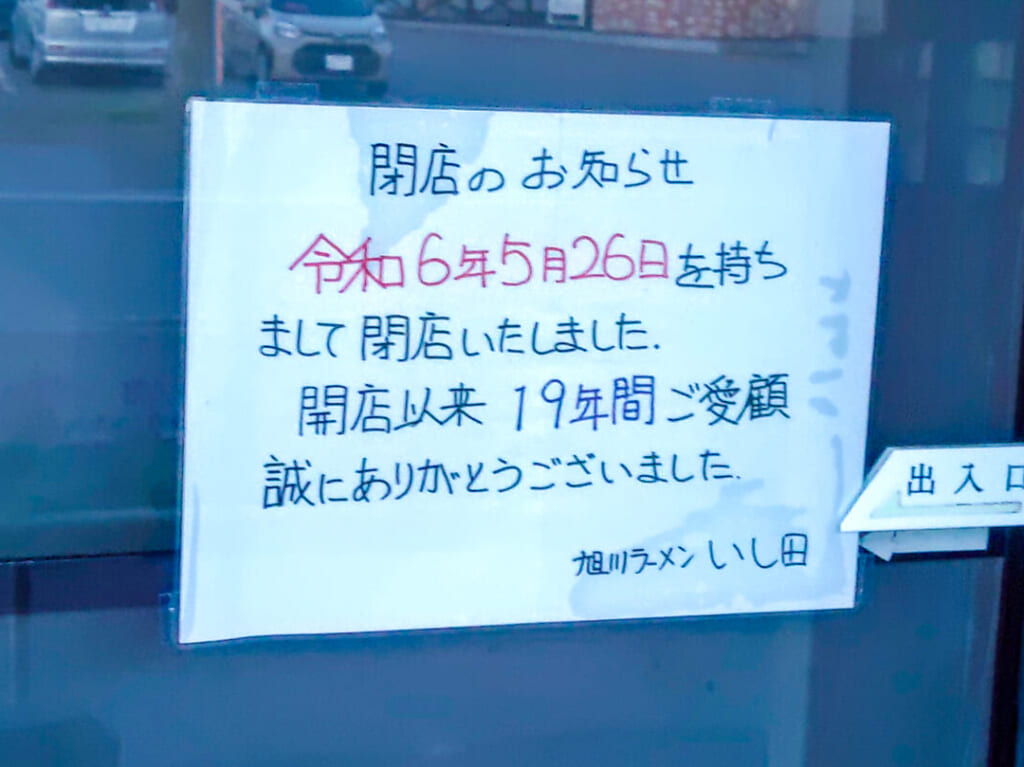 閉店のお知らせ
令和6年5月26日を持ち
まして閉店いたしました.
開店以来 19年間ご愛顧
誠にありがとうございました.
旭川ラーメン いし田
出入口